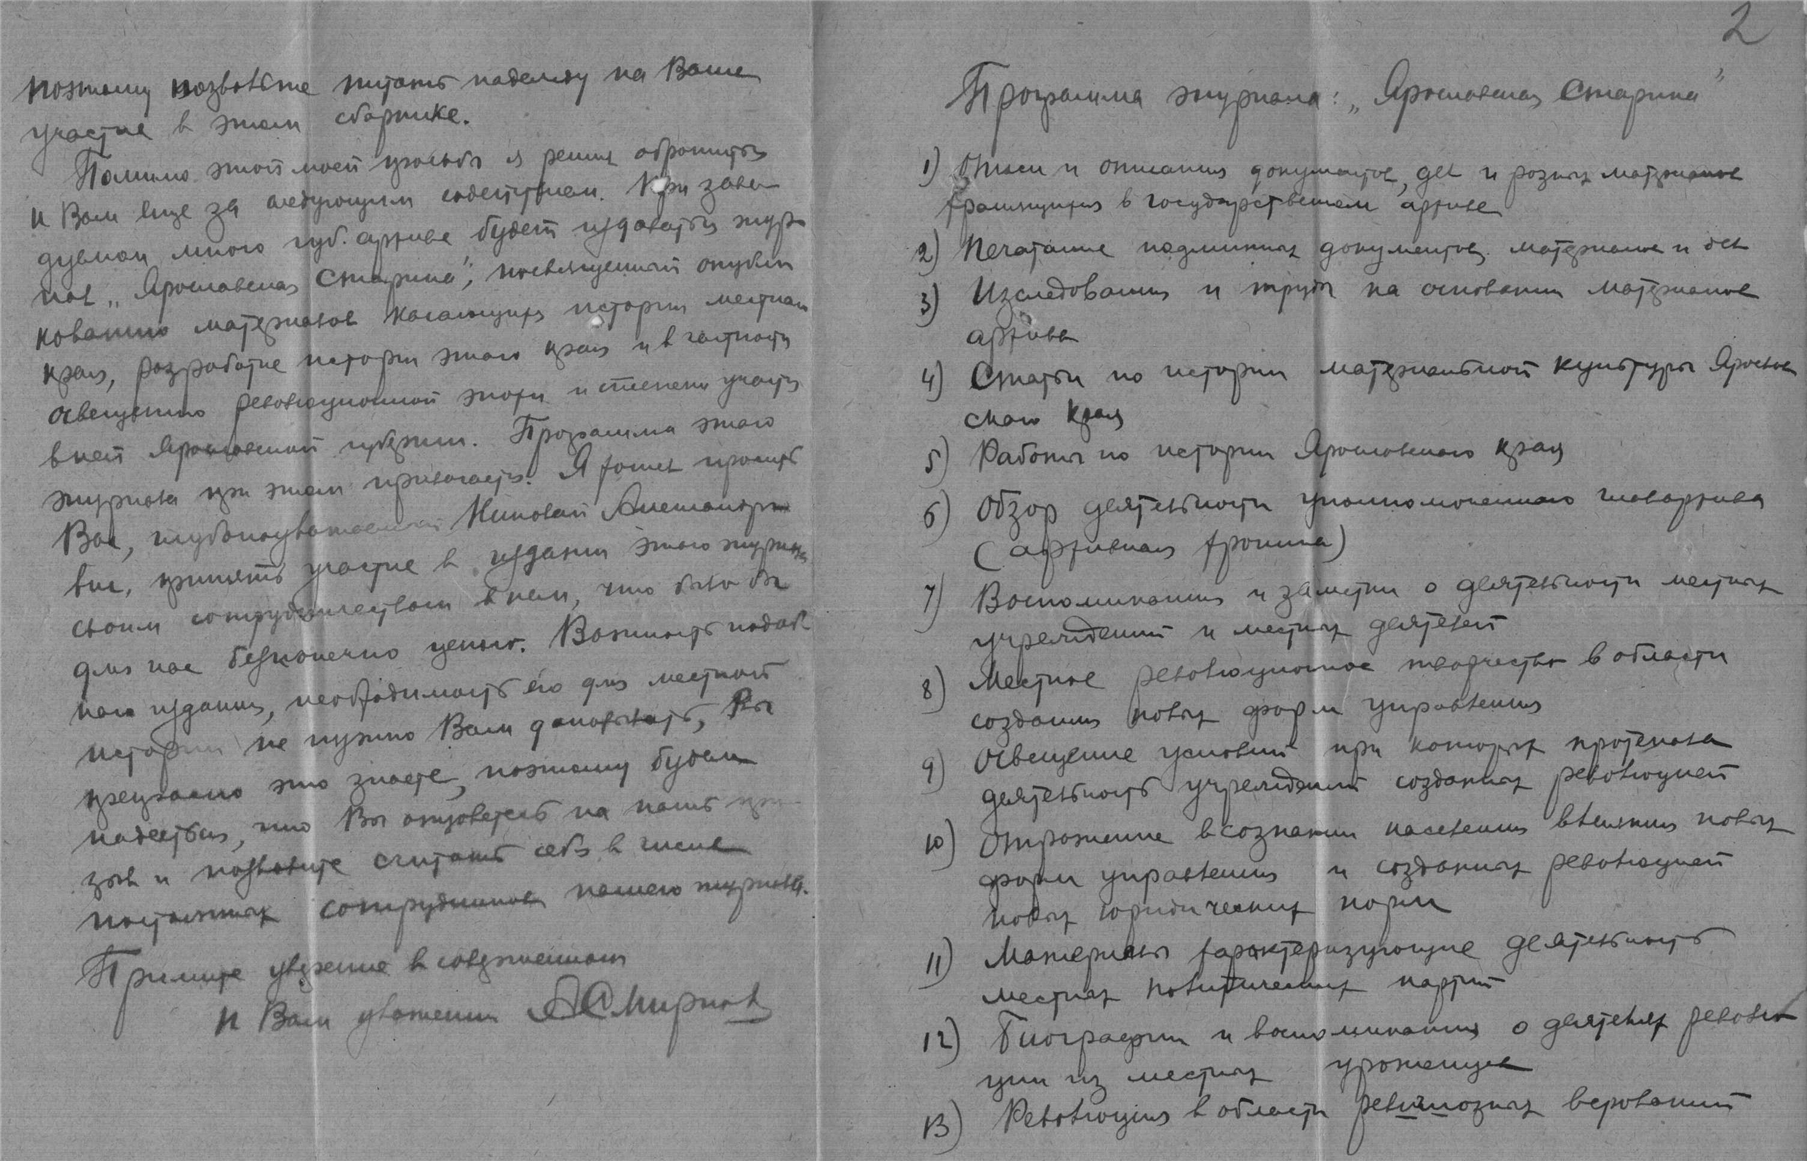 поэтому позвольте питать надежду на Ваше
участие в этом сборнике.
Помимо этой моей просьбы я решил обратиться
к Вам еще за следующим содействием. При заве
дуемом мною губ. архиве будет издаваться жур
нал „Ярославская Старина", посвященный опубли
кованию материалов касающихся истории местного
края, разработке истории этого края и в частности
освещению революционной эпохи и степени участия
в ней Ярославской губернии. Программа этого
журнала при этом прилагается. Я хотел просить
Вас, глубокоуважаемый Николай Александро
вич, принять участие в издании этого журнала
своим сотрудничеством в нем, что было бы
для нас бесконечно ценно. Важность подоб
ного издания, необходимость его для местной
истории не нужно Вам доказывать, Вы
прекрасно это знаете, поэтому будем
надеяться, что Вы отзоветесь на наш при
зыв и позволите считать себя в числе
постоянных сотрудников нашего журнала.
Примите уверение в совершенном
к Вам уважении АСмирнов
2
Программа журнала: „Ярославская Старина"
1) Описи и описания документов, дел и розных материалов
хранящихся в государственном архиве
2) Печатание подлинных документов, материалов и дел
3) Изследования и труды на основании материалов
архива
4) Статьи по истории материальной культуры Ярослав
ского края
5) Работы по истории Ярославского края
6) Обзор деятельности уполномоченного главархива
(архивная хроника)
7) Воспоминания и заметки о деятельности местных
учреждений и местных деятелей
8) Местное революционное творчество в области
создания новых форм управления
9) Освещение условий при которых протекала
деятельность учреждений созданных революцией
10) Отражение в сознании населения влияния новых
форм управления и созданных революцией
новых юридических норм
11) Материалы характеризующие деятельность
местных политических партий
12) Биографии и воспоминания о деятелях револю
ции из местных уроженцев
13) Революция в области религиозных верований